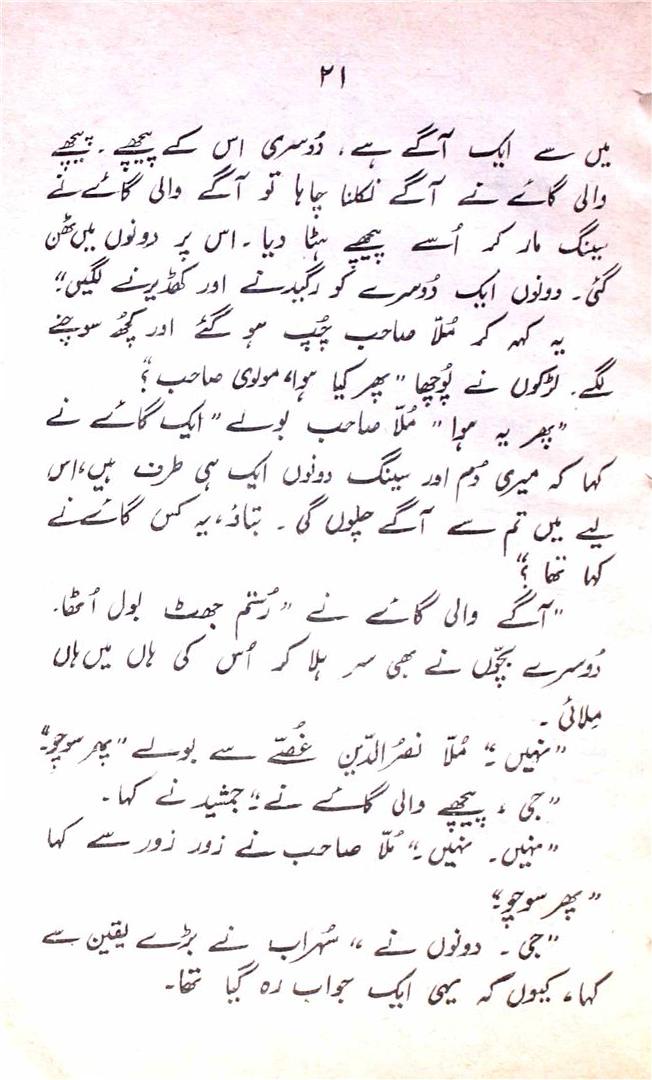 ۲۱
میں سے ایک آگے ہے، دُوسری اس کے پیچھے ۔ پیچھے
والی گائے نے آگے نکلنا چاہا تو آگے والی گائے نے
سینگ مار کر اُسے پیچھے ہٹا دیا ۔ اس پر دونوں میں ٹھن
گئی۔ دونوں ایک دُوسرے کو رگیدنے اور کھدیڑنے لگیں“
یہ کہہ کر مُلّا صاحب چُپ ہو گئے اور کچُھ سوچنے
لگے۔ لڑکوں نے پُوچھا ”پھر کیا ہوا، مولوی صاحب؟“
”پھر یہ ہوا“ مُلّا صاحب بولے ”ایک گائے نے
کہا کہ میری دُم اور سینگ دونوں ایک ہی طرف ہیں، اس
لیے میں تم سے آگے چلوں گی ۔ بتاؤ، یہ کس گائے نے
کہا تھا؟“
”آگے والی گائے نے“ رُستم جھٹ بول اُٹھا۔
دُوسرے بچّوں نے بھی سر ہلا کر اُس کی ہاں میں ہاں
مِلائی ۔
”نہیں۔“ مُلّا نصرُ الدّین غُصّے سے بولے ”پھر سوچو۔“
”جی ، پیچھے والی گائے نے۔“ جمشید نے کہا۔
”نہیں۔ نہیں۔“ مُلّا صاحب نے زور زور سے کہا
”پھر سوچو۔“
”جی ۔ دونوں نے“ سُہراب نے بڑے یقین سے
کہا، کیوں کہ یہی ایک جواب رہ گیا تھا۔